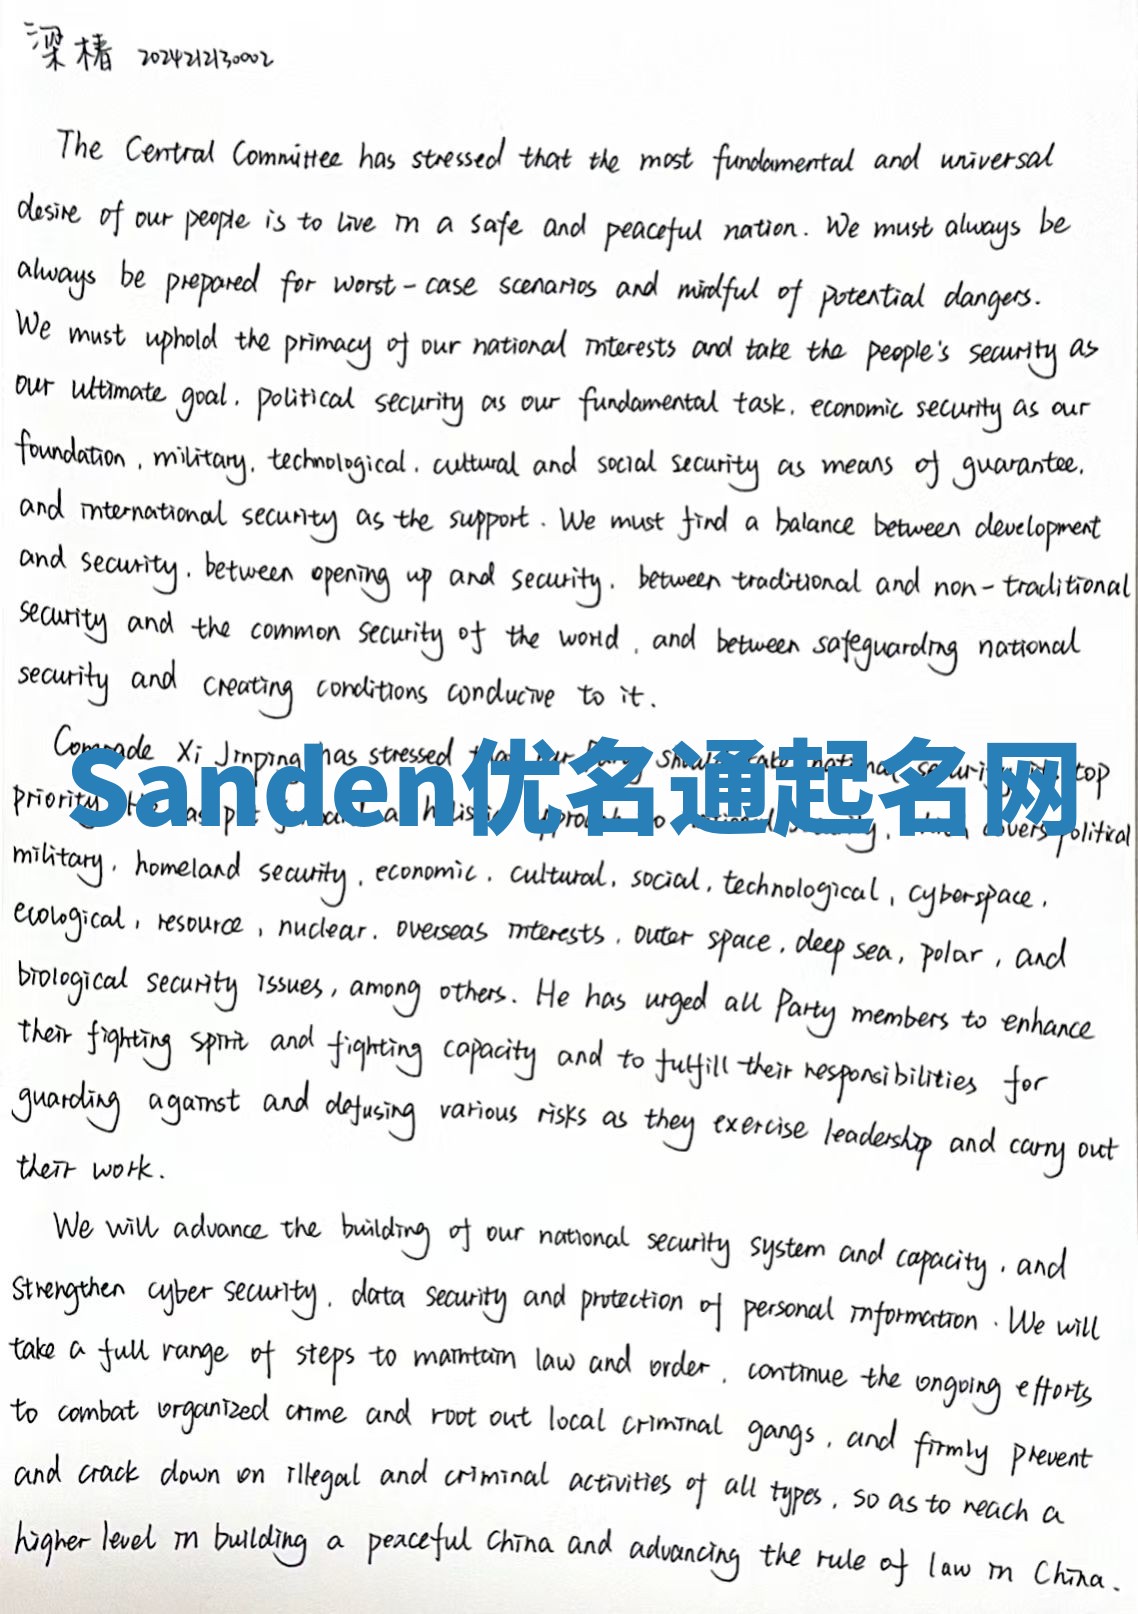 梁椿 2024212130002
The Central Committee has stressed that the most fundamental and universal
desire of our people is to live in a safe and peaceful nation. We must always be
always be prepared for worst-case scenarios and mindful of potential dangers.
We must uphold the primacy of our national interests and take the people's security as
our ultimate goal, political security as our fundamental task, economic security as our
foundation, military, technological, cultural and social security as means of guarantee,
and international security as the support. We must find a balance between development
and security, between opening up and security, between traditional and non-traditional
security and the common security of the world, and between safeguarding national
security and creating conditions conducive to it.
Comrade Xi Jinping has stressed top
Sanden优名通起名网
priority political
military, homeland security, economic, cultural, social, technological, cyberspace,
ecological, resource, nuclear, overseas interests, outer space, deep sea, polar, and
biological security issues, among others. He has urged all Party members to enhance
their fighting spirit and fighting capacity and to fulfill their responsibilities for
guarding against and defusing various risks as they exercise leadership and carry out
their work.
We will advance the building of our national security system and capacity, and
strengthen cyber security, data security and protection of personal information. We will
take a full range of steps to maintain law and order, continue the ongoing efforts
to combat organized crime and root out local criminal gangs, and firmly prevent
and crack down on illegal and criminal activities of all types, so as to reach a
higher level in building a peaceful China and advancing the rule of law in China.